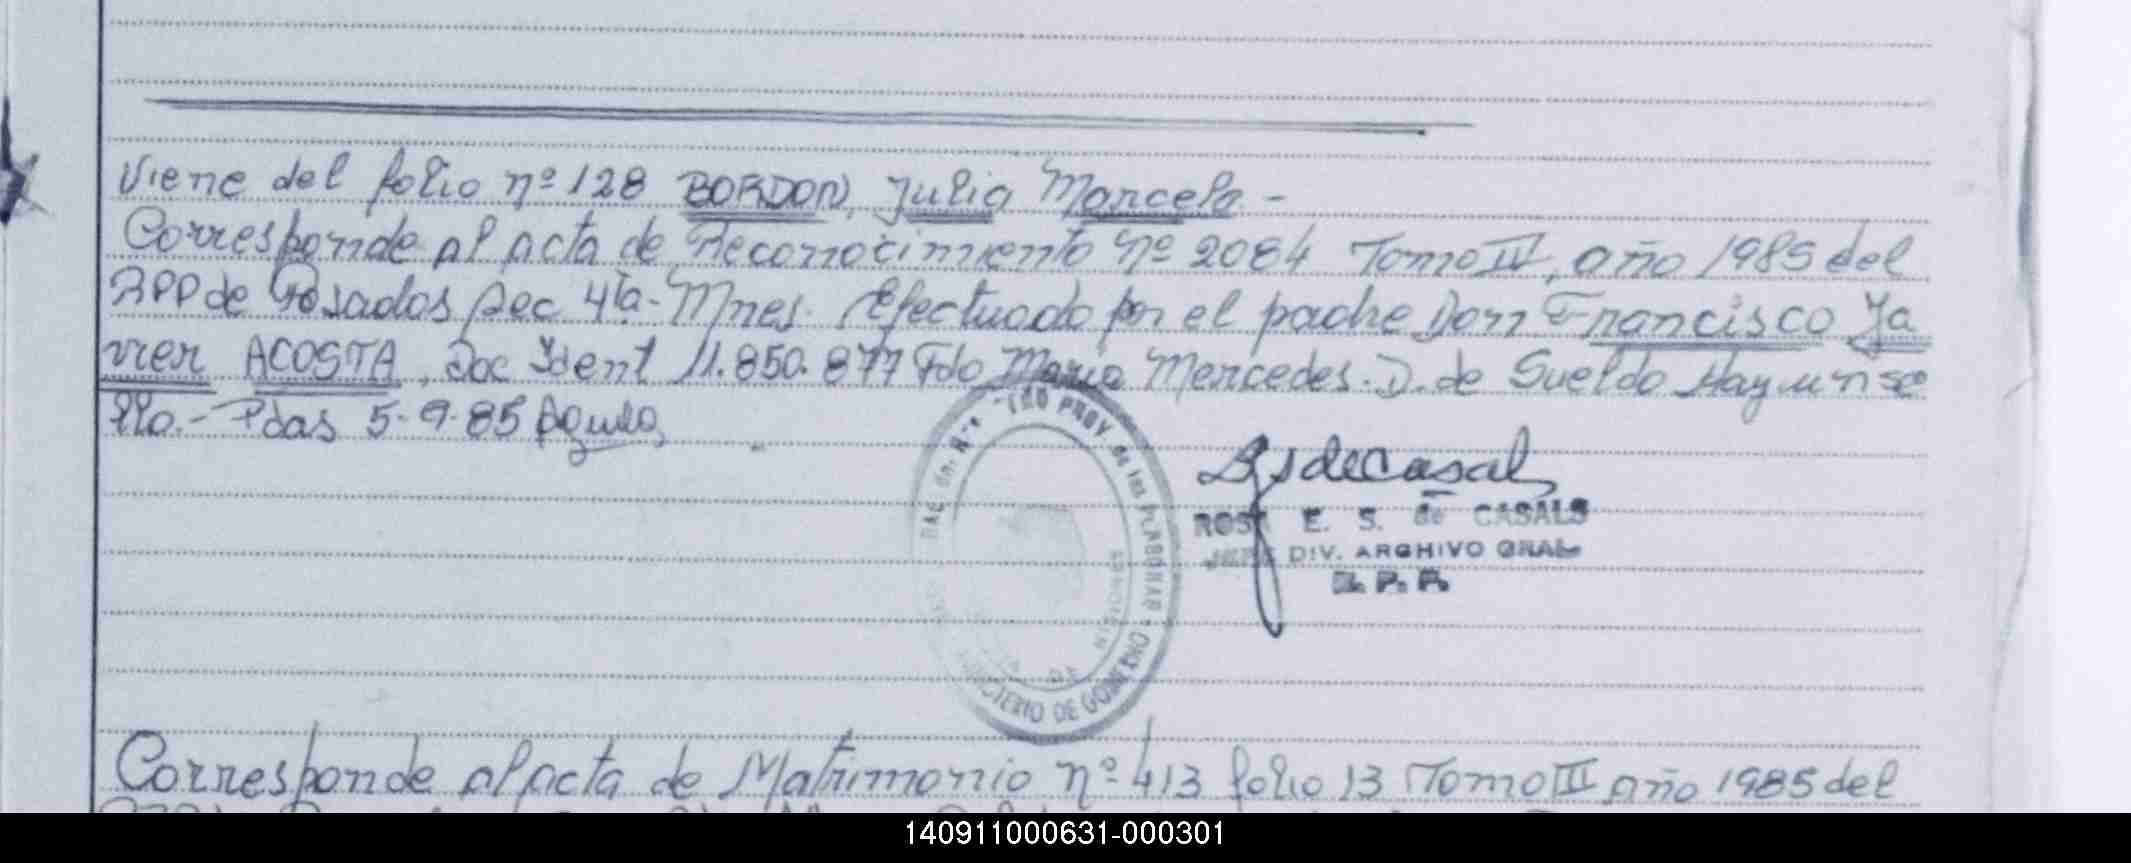 Viene del folio nº 128 BORDON, Julia Marcela -
Corresponde al acta de Reconocimiento nº 2084 Tomo IV, año 1985 del
RPP de Posadas Sec 4ta - Mnes. Efectuado por el padre Don Francisco Ja
vier ACOSTA, Doc Ident 11.850.877 Fdo María Mercedes. D. de Sueldo Hay un se
llo.- Pdas 5-9-85
ROSA E. S. de CASALS
JEFE DIV. ARCHIVO GRAL
R. P. P.
PROV de las PERSONAS
MINISTERIO DE GOBIERNO
Corresponde al acta de Matrimonio nº 413 folio 13 Tomo III año 1985 del
140911000631-000301